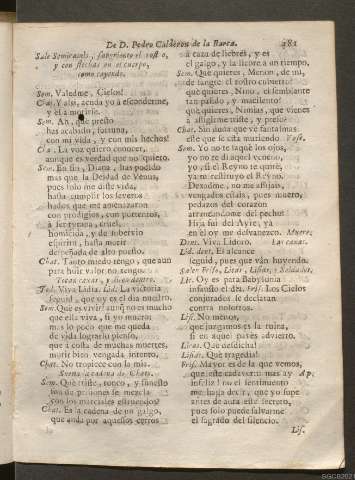 De D. Pedro Calderon de la Barca. 181
Sale Semiramis, sangriento el rostro,
y con flechas en el cuerpo,
como cayendo.
Sem. Valedme, Cielos!
Chat. Y assi, acudo yo à esconderme,
y él à morirse.
Sem. Ah, què presto
has acabado, fortuna,
con mi vida, y con mis hechos!
Cha. La voz quiero conocer,
aunque es verdad que no quiero.
Sem. En fin, Diana, has podido
mas que la Deidad de Venus,
pues solo me diste vida,
hasta cumplir los severos
hados que me amenazaron
con prodigios, con portentos,
à ser tyrana, cruel,
homicida, y de sobervio
espiritu, hasta morir
despeñada de alto puesto.
Chat. Tanto miedo tengo, que aun
para huir valor no tengo.
Tocan caxas, y dicen dentro.
Tod. Viva Lidia. Lid. La victoria
seguid, que oy es el dia nuestro.
Sem. Què es vivir? aunque no es mucho
que ella viva, si yo muero:
mas lo poco que me queda
de vida lograrlo pienso,
que à costa de muchas muertes,
morir bien vengada intento.
Chat. No tropiece con la mia.
Suena la cadena de Chato.
Sem. Què triste, ronco, y funesto
son de prisiones se mezcla
con los marciales estruendos?
Chat. Es la cadena de un galgo,
que anda por aquestos cerros
à caza de liebres, y es
el galgo, y la liebre à un tiempo.
Sem. Què quieres, Menon, de mi,
de sangre el rostro cubierto?
què quieres, Nino, el semblante
tan palido, y macilento?
què quieres, Ninias, que vienes
à afligirme triste, y preso?
Chat. Sin duda que vè fantasmas
este que se està muriendo. Vase.
Sem. Yo no te saquè los ojos,
yo no te dì aquel veneno,
yo, si el Reyno te quitè,
ya te restituyo el Reyno.
Dexadme, no me aflijais,
vengados estais, pues muero,
pedazos del corazon
arrancandome del pecho:
Hija fui del Ayre, ya
en èl oy me desvanezco. Muere.
Dent. Viva Lidoro. Las caxas.
Lid. dent. El alcance
seguid, pues que vàn huyendo.
Salen Friso, Licas, Lisias, y Soldados.
Lic. Oy es para Babylonia
infausto el dia. Fris. Los Cielos
conjurados se declaran
contra nosotros.
Lis. No menos,
que juzgamos es la ruina,
si en aquel passo advierto.
Licas. Què desdicha!
Lisia. Què tragedia!
Fris. Mayor es de la que vemos,
que este cadaver: mas ay Ap.
infeliz! no el sentimiento
me haga decir, que yo supe
antes de aora este secreto,
pues solo puede salvarme
el sagrado del silencio.
Lis.